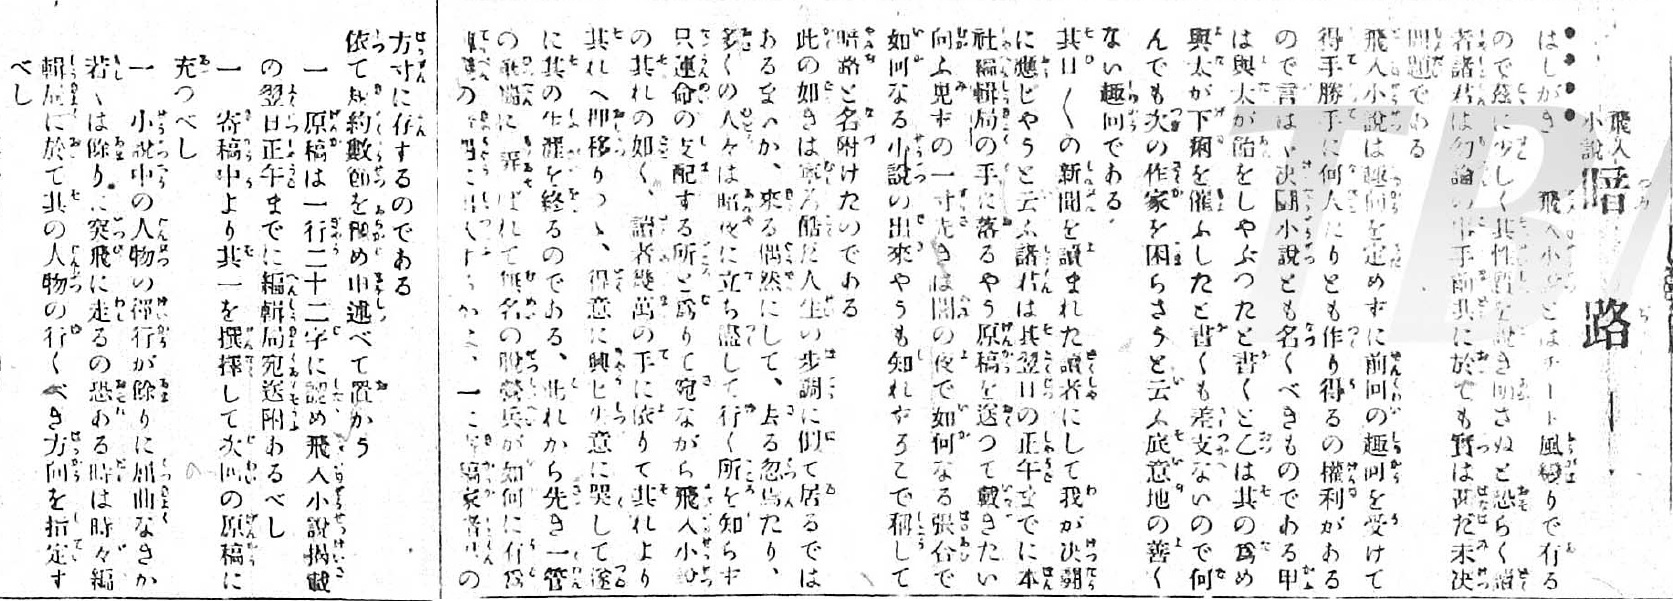 飛入
小說
暗路
はしがき 飛入小說とはチート風變りで有る
ので茲に少しく其性質を說き明さぬと恐らく讀
者諸君は勿論の事手前共に於ても實は甚だ未決
問題である
飛入小說は趣向を定めずに前回の趣向を受けて
得手勝手に何人たりとも作り得るの權利がある
ので言はゞ決鬪小說とも名くべきものである甲
は與太が飴をしやぶつたと書くと乙は其の爲め
與太が下痢を催ふしたと書くも差支ないので何
んでも次の作家を困らさうと云ふ底意地の善く
ない趣向である
其日〳〵の新聞を讀まれた讀者にして我が決鬪
に應じやうと云ふ諸君は其翌日の正午までに本
社編輯局の手に落るやう原稿を送つて戴きたい
向ふ見ずの一寸先きは闇の夜で如何なる張合で
如何なる小說の出來やうも知れずそこで稱して
暗路と名附けたのである
此の如きは寧ろ酷だ人生の步調に似て居るでは
あるまいか、來る偶然にして、去る忽焉たり、
多くの人々は暗夜に立ち盡して行く所を知らず
只運命の支配する所と爲りて宛ながら飛入小說
の其れの如く、讀者幾萬の手に依りて其れより
其れへ卽移りつゝ、得意に興じ失意に哭して遂
に其の生涯を終るのである、此れから先き一管
の筆端に弄ばれて無名の脫營兵が如何に行爲
一に寄稿家諸君の
方寸に存するのである
依て規約數節を極め申述べて置かう
一 原稿は一行二十二字に認め飛入小說揭載
の翌日正午までに編輯局宛送附あるべし
一 寄稿中より其一を撰擇して次回の原稿に
充つべし
一 小說中の人物の裡行が餘りに屈曲なきか
若くは餘りに突飛に走るの恐ある時は時々編
輯局に於て其の人物の行くべき方向を指定す
べし
TB